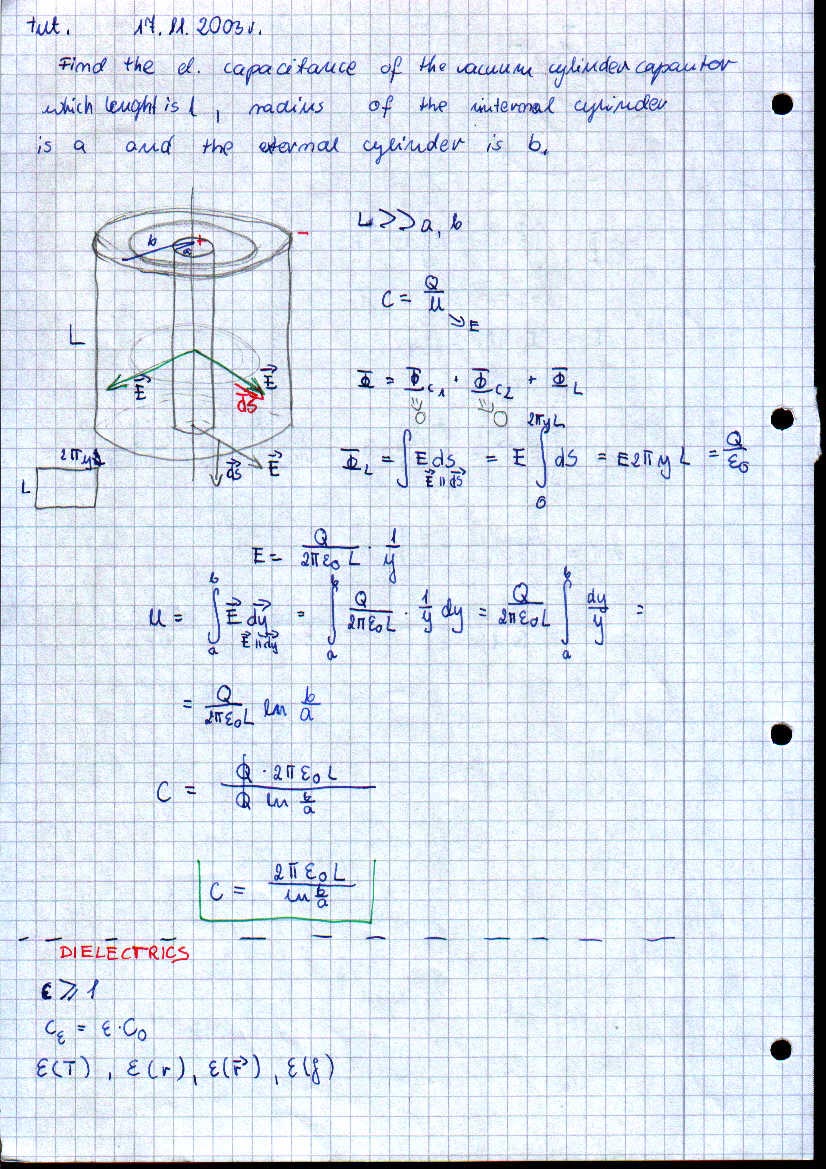 tut. 17.11.2003r.
Find the el. capacitance of the vacuum cylinder capacitor
which lenght is l, radius of the internal cylinder
is a and the external cylinder is b.
L >> a, b
b
a
+
-
C = Q/U
↘ E
L
E⃗
E⃗
dS⃗
Φ = Φ_C1 + Φ_C2 + Φ_L
0 0
2πyL
L
dS⃗
E⃗
Φ_L = ∫ E ds = E ∫_0^{2πyL} dS = E 2πy L = Q/ε₀
E⃗ || dS⃗
E = Q/(2πε₀ L) · 1/y
U = ∫_a^b E⃗ dy⃗ = ∫_a^b Q/(2πε₀L) · 1/y dy = Q/(2πε₀L) ∫_a^b dy/y =
E⃗ || dy⃗
= Q/(2πε₀L) ln b/a
C = (Q · 2πε₀ L)/(Q ln b/a)
C = (2πε₀L)/(ln b/a)
DIELECTRICS
ε ⩾ 1
C_ε = ε · C₀
ε(T), ε(r), ε(r⃗), ε(f)